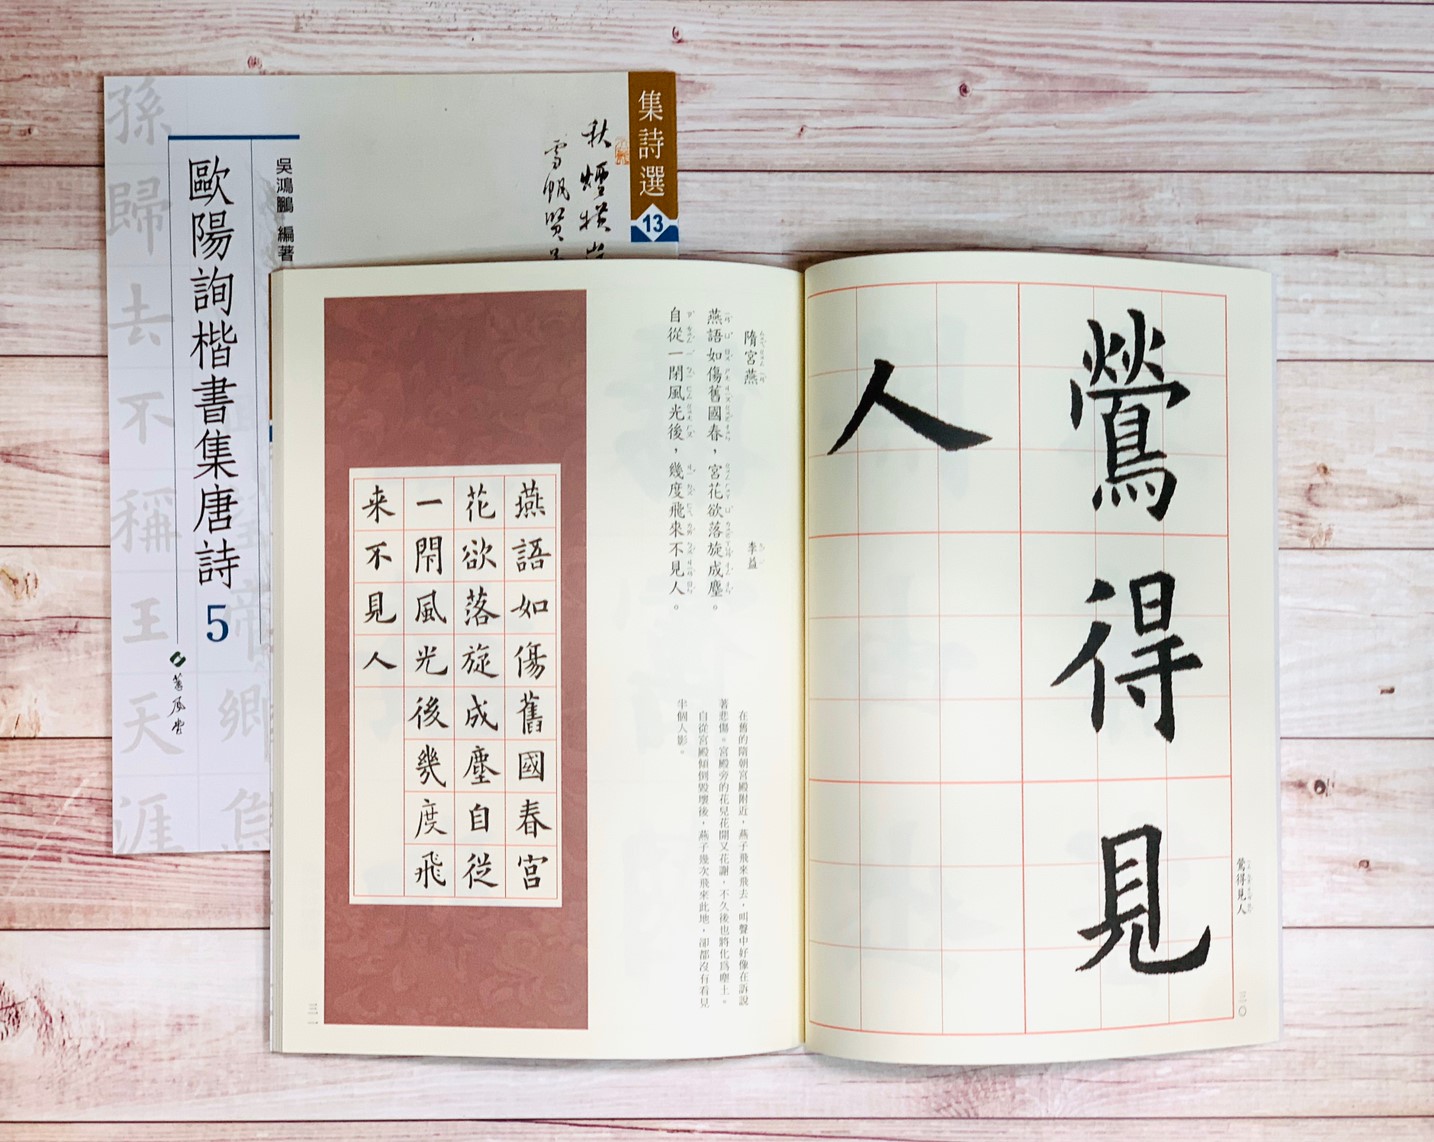 集詩選
13
秋煙橫
雪帆賢
吳鴻鵬 編著
歐陽詢楷書集唐詩 5
蕙風堂
孫歸去不稱王天涯
帝鄉鳥
鶯得見
人
鶯得見人
三〇
隋宮燕 李益
燕語如傷舊國春，宮花欲落旋成塵。
自從一閉風光後，幾度飛來不見人。
在舊的隋朝宮殿附近，燕子飛來飛去，叫聲中好像在訴說
著悲傷。宮殿旁的花兒花開又花謝，不久後也將化為塵土。
自從宮殿傾倒毀壞後，燕子幾次飛來此地，卻都沒有看見
半個人影。
燕語如傷舊國春宮
花欲落旋成塵自從
一閇風光後幾度飛
来不見人
三一